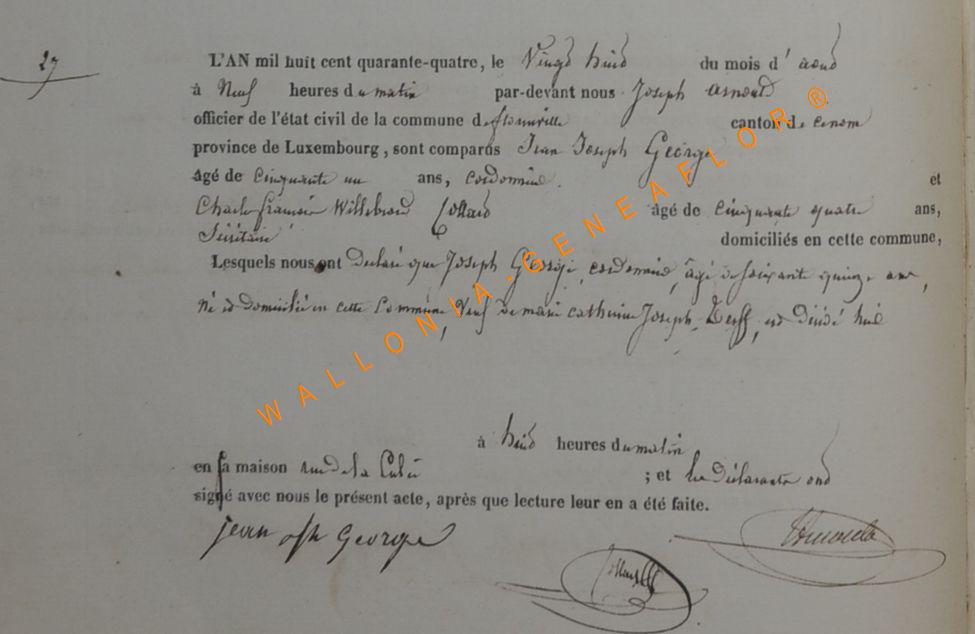 27
L'AN mil huit cent quarante-quatre, le Vingt huit du mois d'aout
à Neuf heures du matin par-devant nous Joseph Arnould
officier de l'état civil de la commune de florenville canton de
province de Luxembourg, sont comparus Jean Joseph George
âgé de Cinquante un ans, Cordonnier et
Charles françois Willebrord Collard âgé de cinquante quatre ans,
domiciliés en cette commune,
Lesquels nous ont déclaré que Joseph George, cordonnier, âgé de soixante quinze ans,
né et domicilié en cette Commune, Veuf de marie catherine Joseph, est décédé hier
à huit heures du matin
en sa maison rue de la ; et les déclarants ont
signé avec nous le présent acte, après que lecture leur en a été faite.
jean jsph George
Collard
WALLONIA-GENEAFLOR®